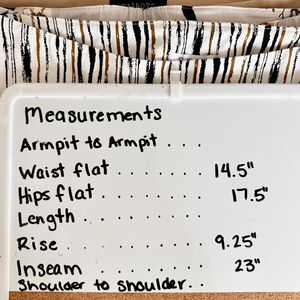 TALBOTS
Measurements
Armpit to Armpit . . .
Waist flat . . . . . . . . 14.5"
Hips flat . . . . . . . . . 17.5"
Length . . . . . . . . . .
Rise . . . . . . . . . . . 9.25"
Inseam . . . . . . . . . 23"
Shoulder to Shoulder . .